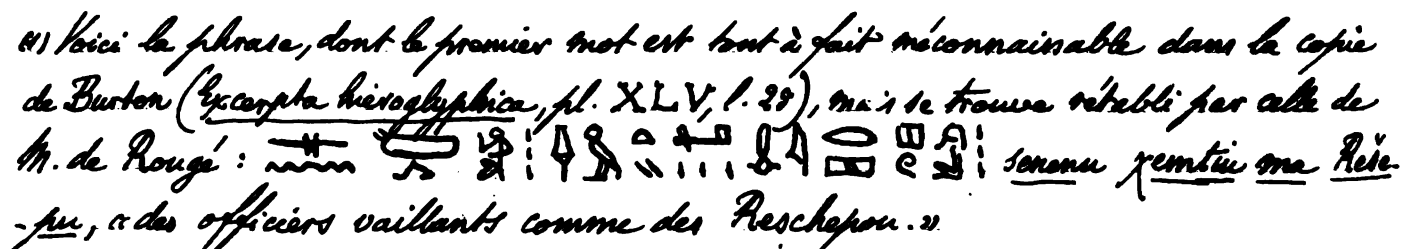 (1) Voici la phrase, dont le premier mot est tout à fait méconnaissable dans la copie
de Burton (Excerpta hieroglyphica, pl. XLV, l. 28), mais se trouve rétabli par celle de
M. de Rougé : senenu χemtiu ma Reše-
-pu, « des officiers vaillants comme des Reschepou. »